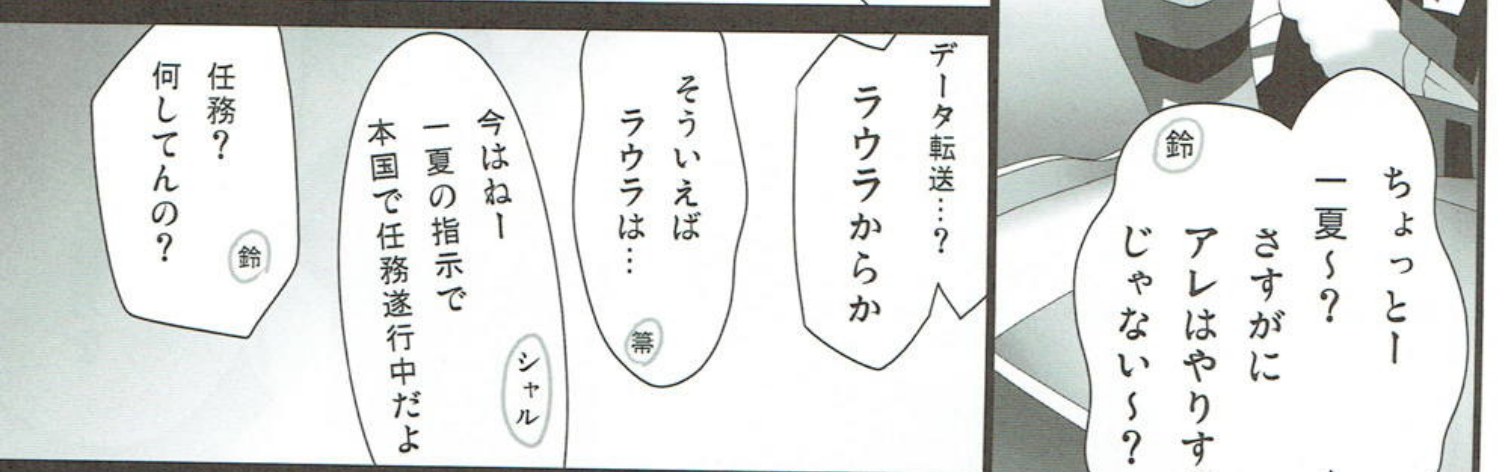 ちょっとー
一夏～？
さすがに
アレはやりす
じゃない～？
鈴
データ転送…？
ラウラからか
そういえば
ラウラは…
箒
今はねー
一夏の指示で
本国で任務遂行中だよ
シャル
任務？
何してんの？
鈴